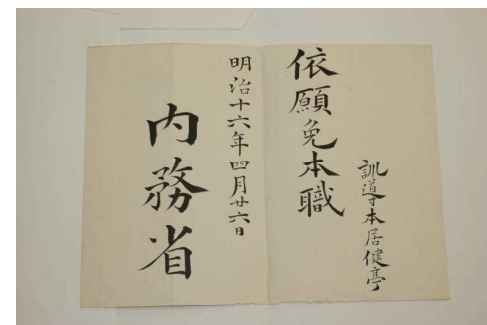 訓導本居健亭
依願免本職
明治十六年四月廿六日
内務省